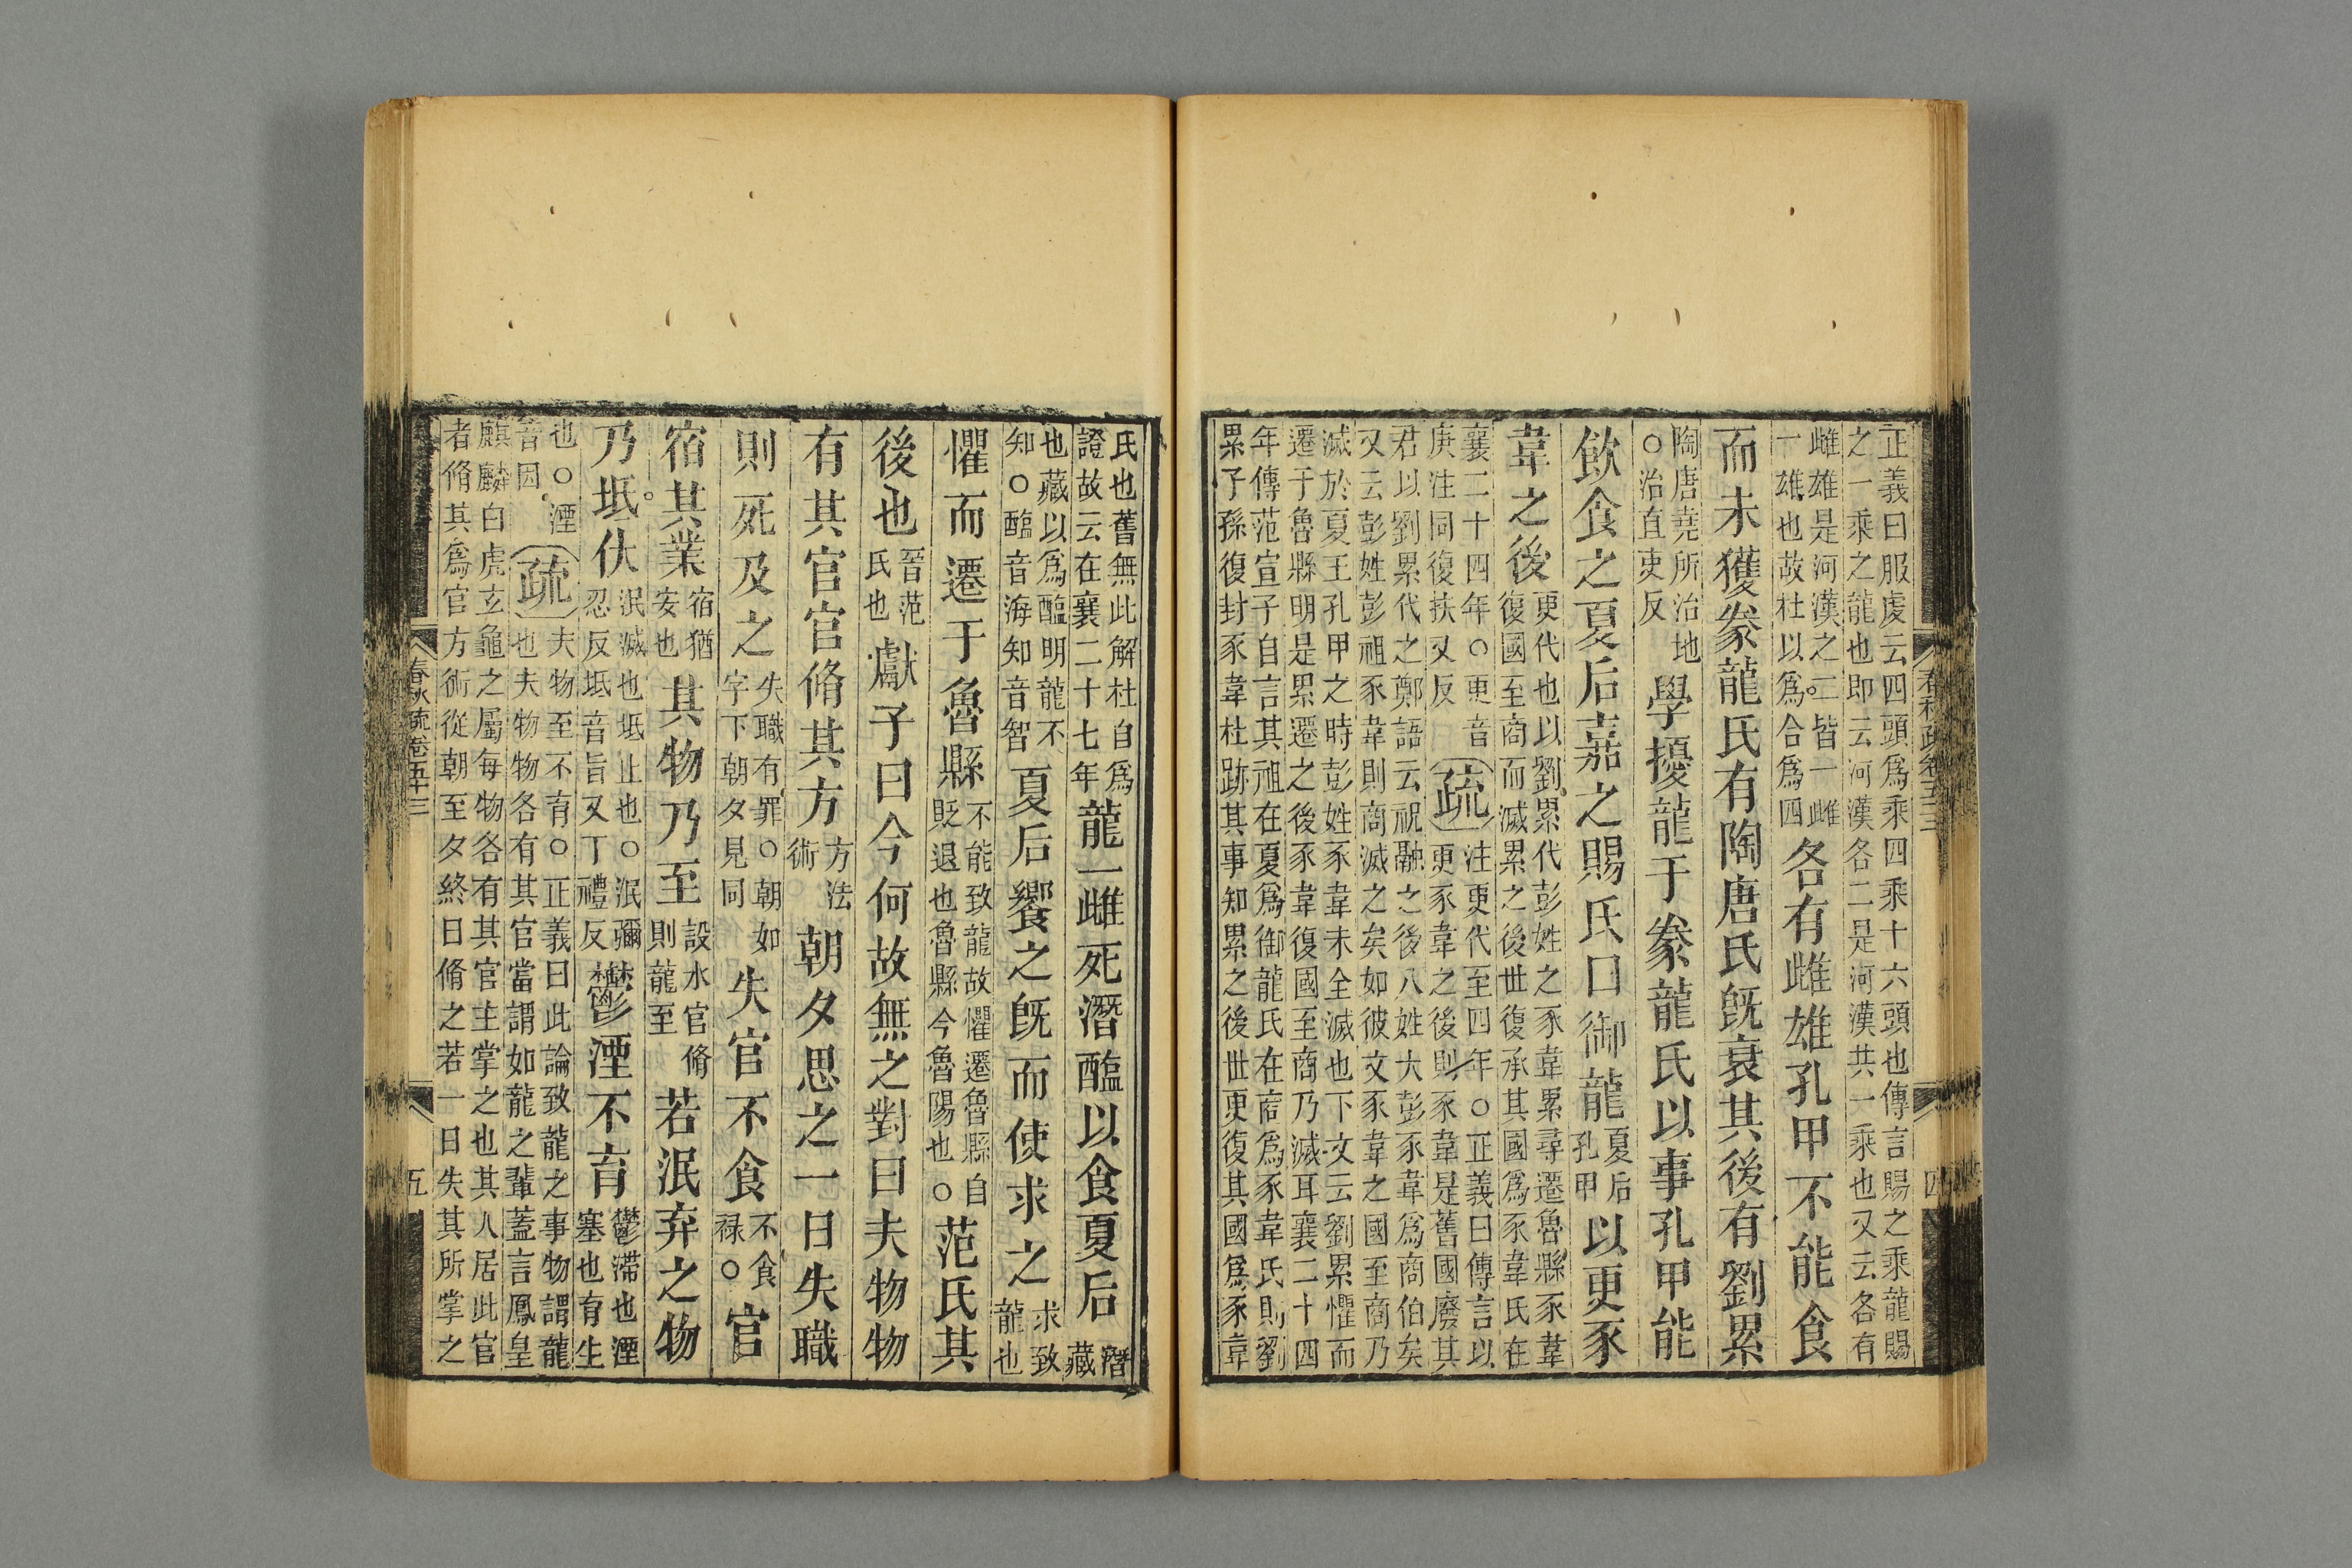 正義曰服虔云四頭爲乘四乘十六頭也傳言賜之乘龍賜
之一乘之龍也即云河漢各二是河漢共一乘也又云各有
雌雄是河漢之二皆一雌
一雄也故杜以爲合爲四
各有雌雄孔甲不能食
而未獲豢龍氏有陶唐氏旣衰其後有劉累
陶唐堯所治地
○治直吏反
學擾龍于豢龍氏以事孔甲能
飲食之夏后嘉之賜氏曰御龍
夏后
孔甲
以更豕
韋之後
更代也以劉累代彭姓之豕韋累尋遷魯縣豕韋
復國至商而滅累之後世復承其國爲豕韋氏在
襄二十四年○更音
庚注同復扶又反
疏
注更代至四年○正義曰傳言以
更豕韋之後則豕韋是舊國廢其
君以劉累代之鄭語云祝融之後八姓大彭豕韋爲商伯矣
又云彭姓彭祖豕韋則商滅之矣如彼文豕韋之國至商乃
滅於夏王孔甲之時彭姓豕韋未全滅也下文云劉累懼而
遷于魯縣明是累遷之後豕韋復國至商乃滅耳襄二十四
年傳范宣子自言其祖在夏爲御龍氏在商爲豕韋氏則劉
累子孫復封豕韋杜跡其事知累之後世更復其國爲豕韋
春秋疏卷五十三
四
氏也舊無此解杜自爲
證故云在襄二十七年
龍一雌死潛醢以食夏后
潛
藏
也藏以爲醢明龍不
知○醢音海知音智
夏后饗之旣而使求之
求致
龍也
懼而遷于魯縣
不能致龍故懼遷魯縣自
貶退也魯縣今魯陽也○
范氏其
後也
晉范
氏也
獻子曰今何故無之對曰夫物物
有其官官脩其方
方法
術
朝夕思之一日失職
則死及之
失職有罪○朝如
字下朝夕見同
失官不食
不食
祿○
官
宿其業
宿猶
安也
其物乃至
設水官脩
則龍至
若泯弃之物
乃坻伏
泯滅也坻止也○泯彌
忍反坻音旨又丁禮反
鬱湮不育
鬱滯也湮
塞也育生
也○湮
音因
疏
夫物至不育○正義曰此論致龍之事物謂龍
也夫物物各有其官當謂如龍之輩蓋言鳳皇
麒麟白虎玄龜之屬每物各有其官主掌之也其人居此官
者脩其爲官方術從朝至夕終日脩之若一日失其所掌之
春秋疏卷五十三
五